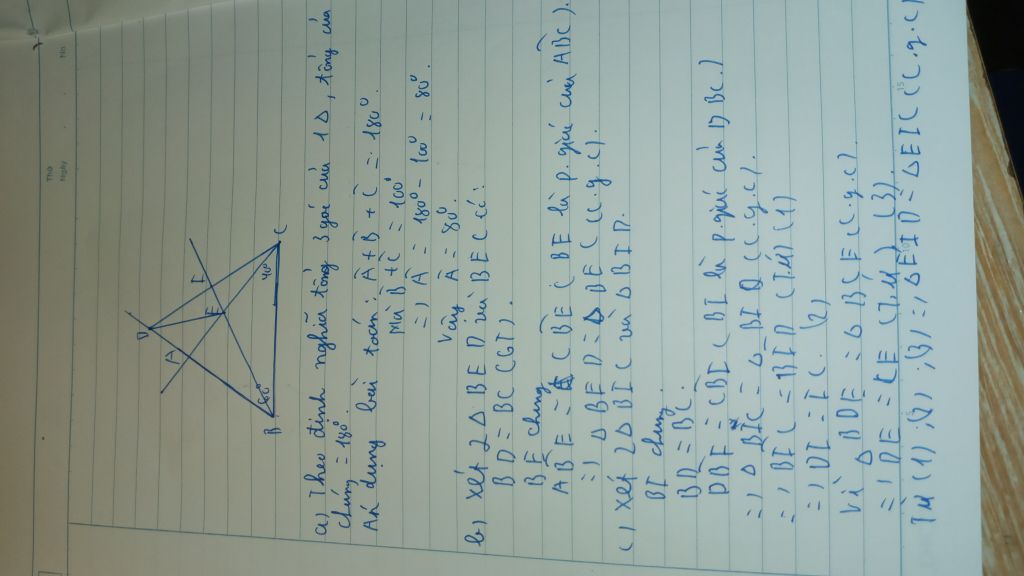 Thứ
Ngày
No
D
A
E
I
B
60°
40°
C
a) Theo định nghĩa tổng 3 góc của 1 Δ, tổng của
chúng = 180°.
Áp dụng bài toán: Â + B̂ + Ĉ = 180°
Mà B̂ + Ĉ = 100°
=) Â = 180° - 100° = 80°
Vậy Â = 80°.
b) Xét 2 Δ BED và BEC có:
BD = BC (GT).
BE chung
ABE = CBE (BE là p. giác của ABC).
=) Δ BED = Δ BEC (c.g.c).
c) Xét 2Δ BIC và Δ BID.
BI chung
BD = BC.
DBI = CBI (BI là p. giác của DBC.)
=) Δ BIC = Δ BID (c.g.c).
=) BIC = BID (T/Ứ) (1)
=) DI = IC. (2)
Vì Δ BDE = Δ BCE (c.g.c).
=) DE = CE (T/Ứ) (3).
Từ (1); (2); (3) =) Δ EID = Δ EIC (c.g.c)